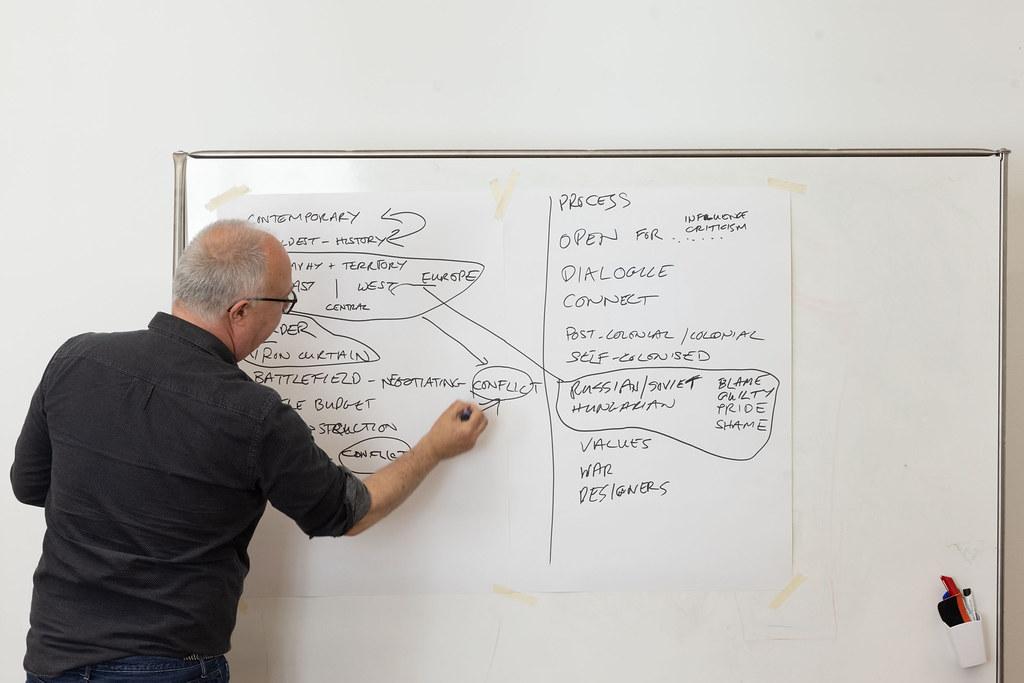 CONTEMPORARY
- HISTORY
+ TERRITORY
WEST EUROPE
CENTRAL
IRON CURTAIN
BATTLEFIELD - NEGOTIATING CONFLICT
BUDGET
CONFLICT
PROCESS
OPEN FOR ....... INFLUENCE
CRITICISM
DIALOGUE
CONNECT
POST-COLONIAL / COLONIAL
SELF-COLONISED
RUSSIAN/SOVIET BLAME
HUNGARIAN GUILTY
PRIDE
SHAME
VALUES
WAR
DESIGNERS